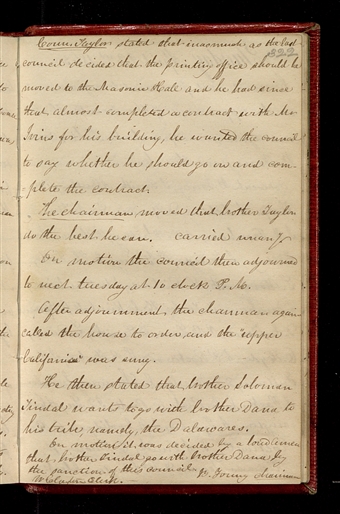 Coun. Taylor stated that inasmuch as the last
222
council decided that the printing office should be
moved to the Masonic Hall and he had since
that almost completed a contract with Mr
Ivins for his building, he wanted the council
to say whether he should go on and com-
plete the contract.
The chairman moved that brother Taylor
do the best he can. carried unany
On motion the council then adjourned
to meet tuesday at 10 clock P. M.
After adjournment the chairman again
called the house to order, and the "upper
California" was sung.
He then stated that brother Soloman
Tindal wants to go with brother Dana to
his tribe namely, the Dalawares.
On motion it was decided by a
that brother Tindal go with brother Dana by
the sanction of this council. B. Young chairman
Wm Clayton Clerk.